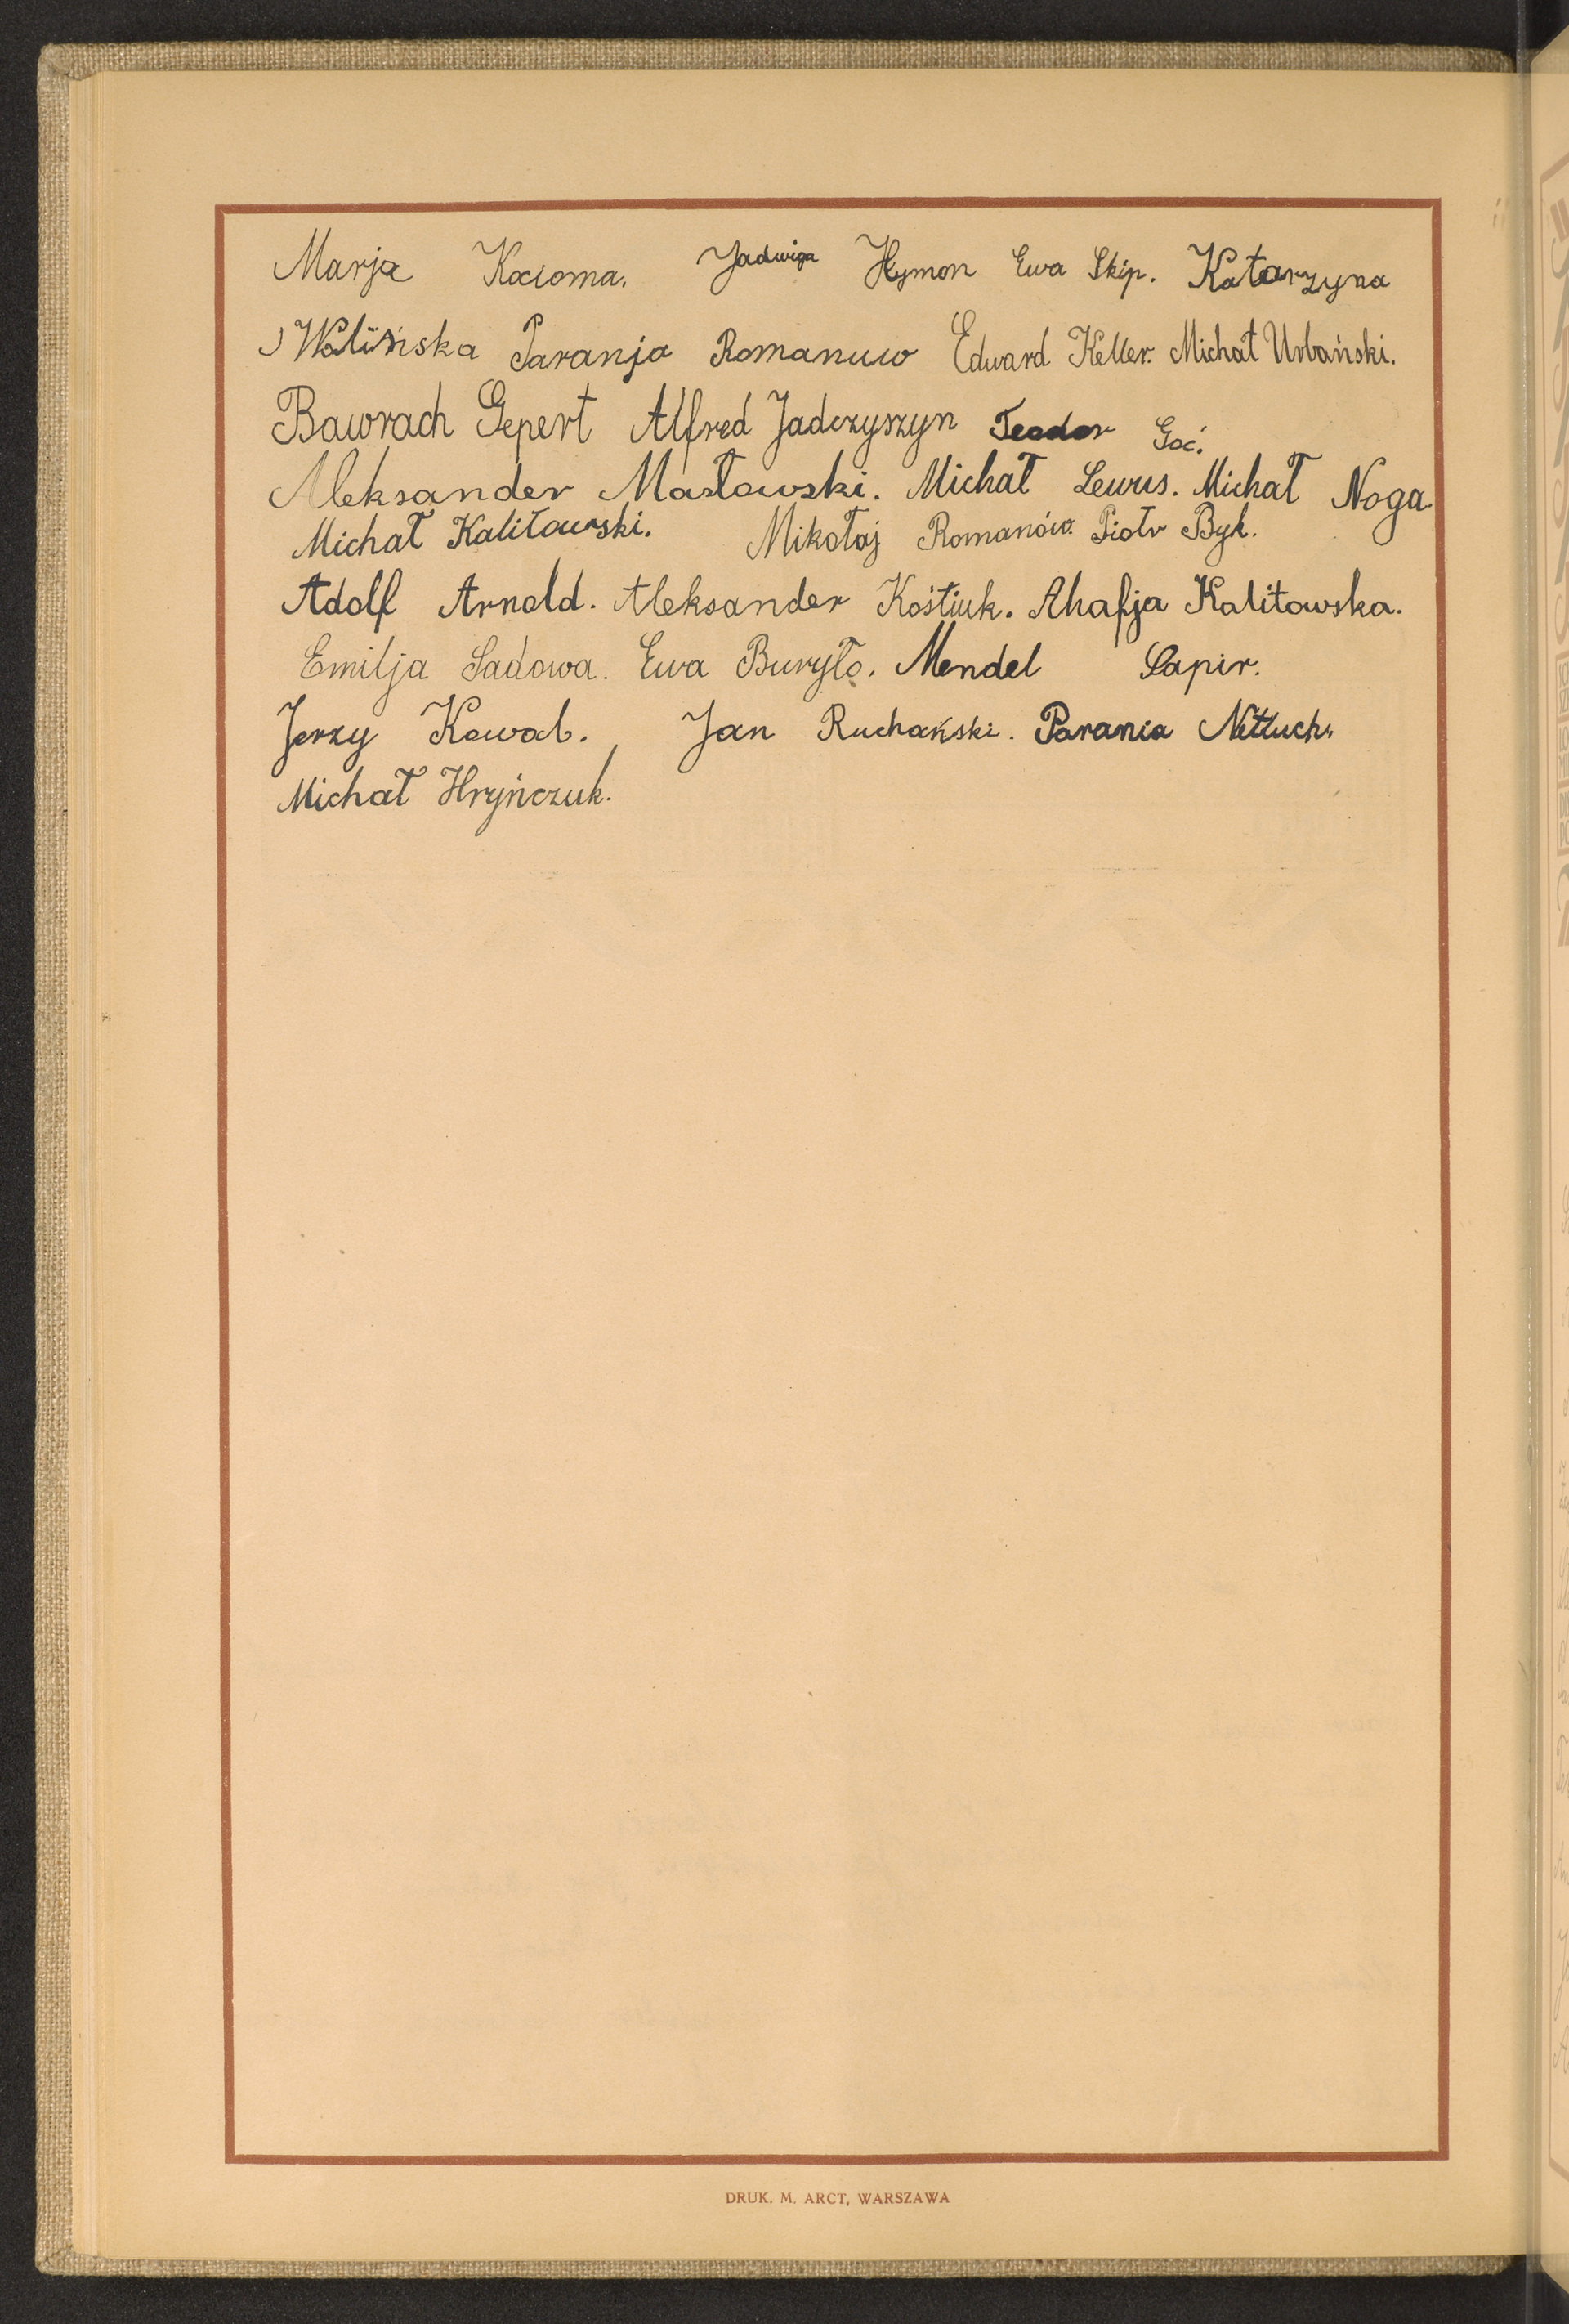 Marja Kocioma. Jadwiga Hymon Ewa Skip. Katarzyna
Walińska Paranja Romanuw Edward Keller. Michał Urbański.
Bawrach Gepert Alfred Jadczyszyn Teodor Goć.
Aleksander Masłowski. Michał Lewus. Michał Noga.
Michał Kaliłowski. Mikołaj Romanów. Piotr Byk.
Adolf Arnold. Aleksander Kostiuk. Ahafja Kalitowska.
Emilja Sadowa. Ewa Buryło. Mendel Sapir.
Jerzy Kowal. Jan Ruchański. Parania
Michał Hryńczuk.
DRUK. M. ARCT, WARSZAWA